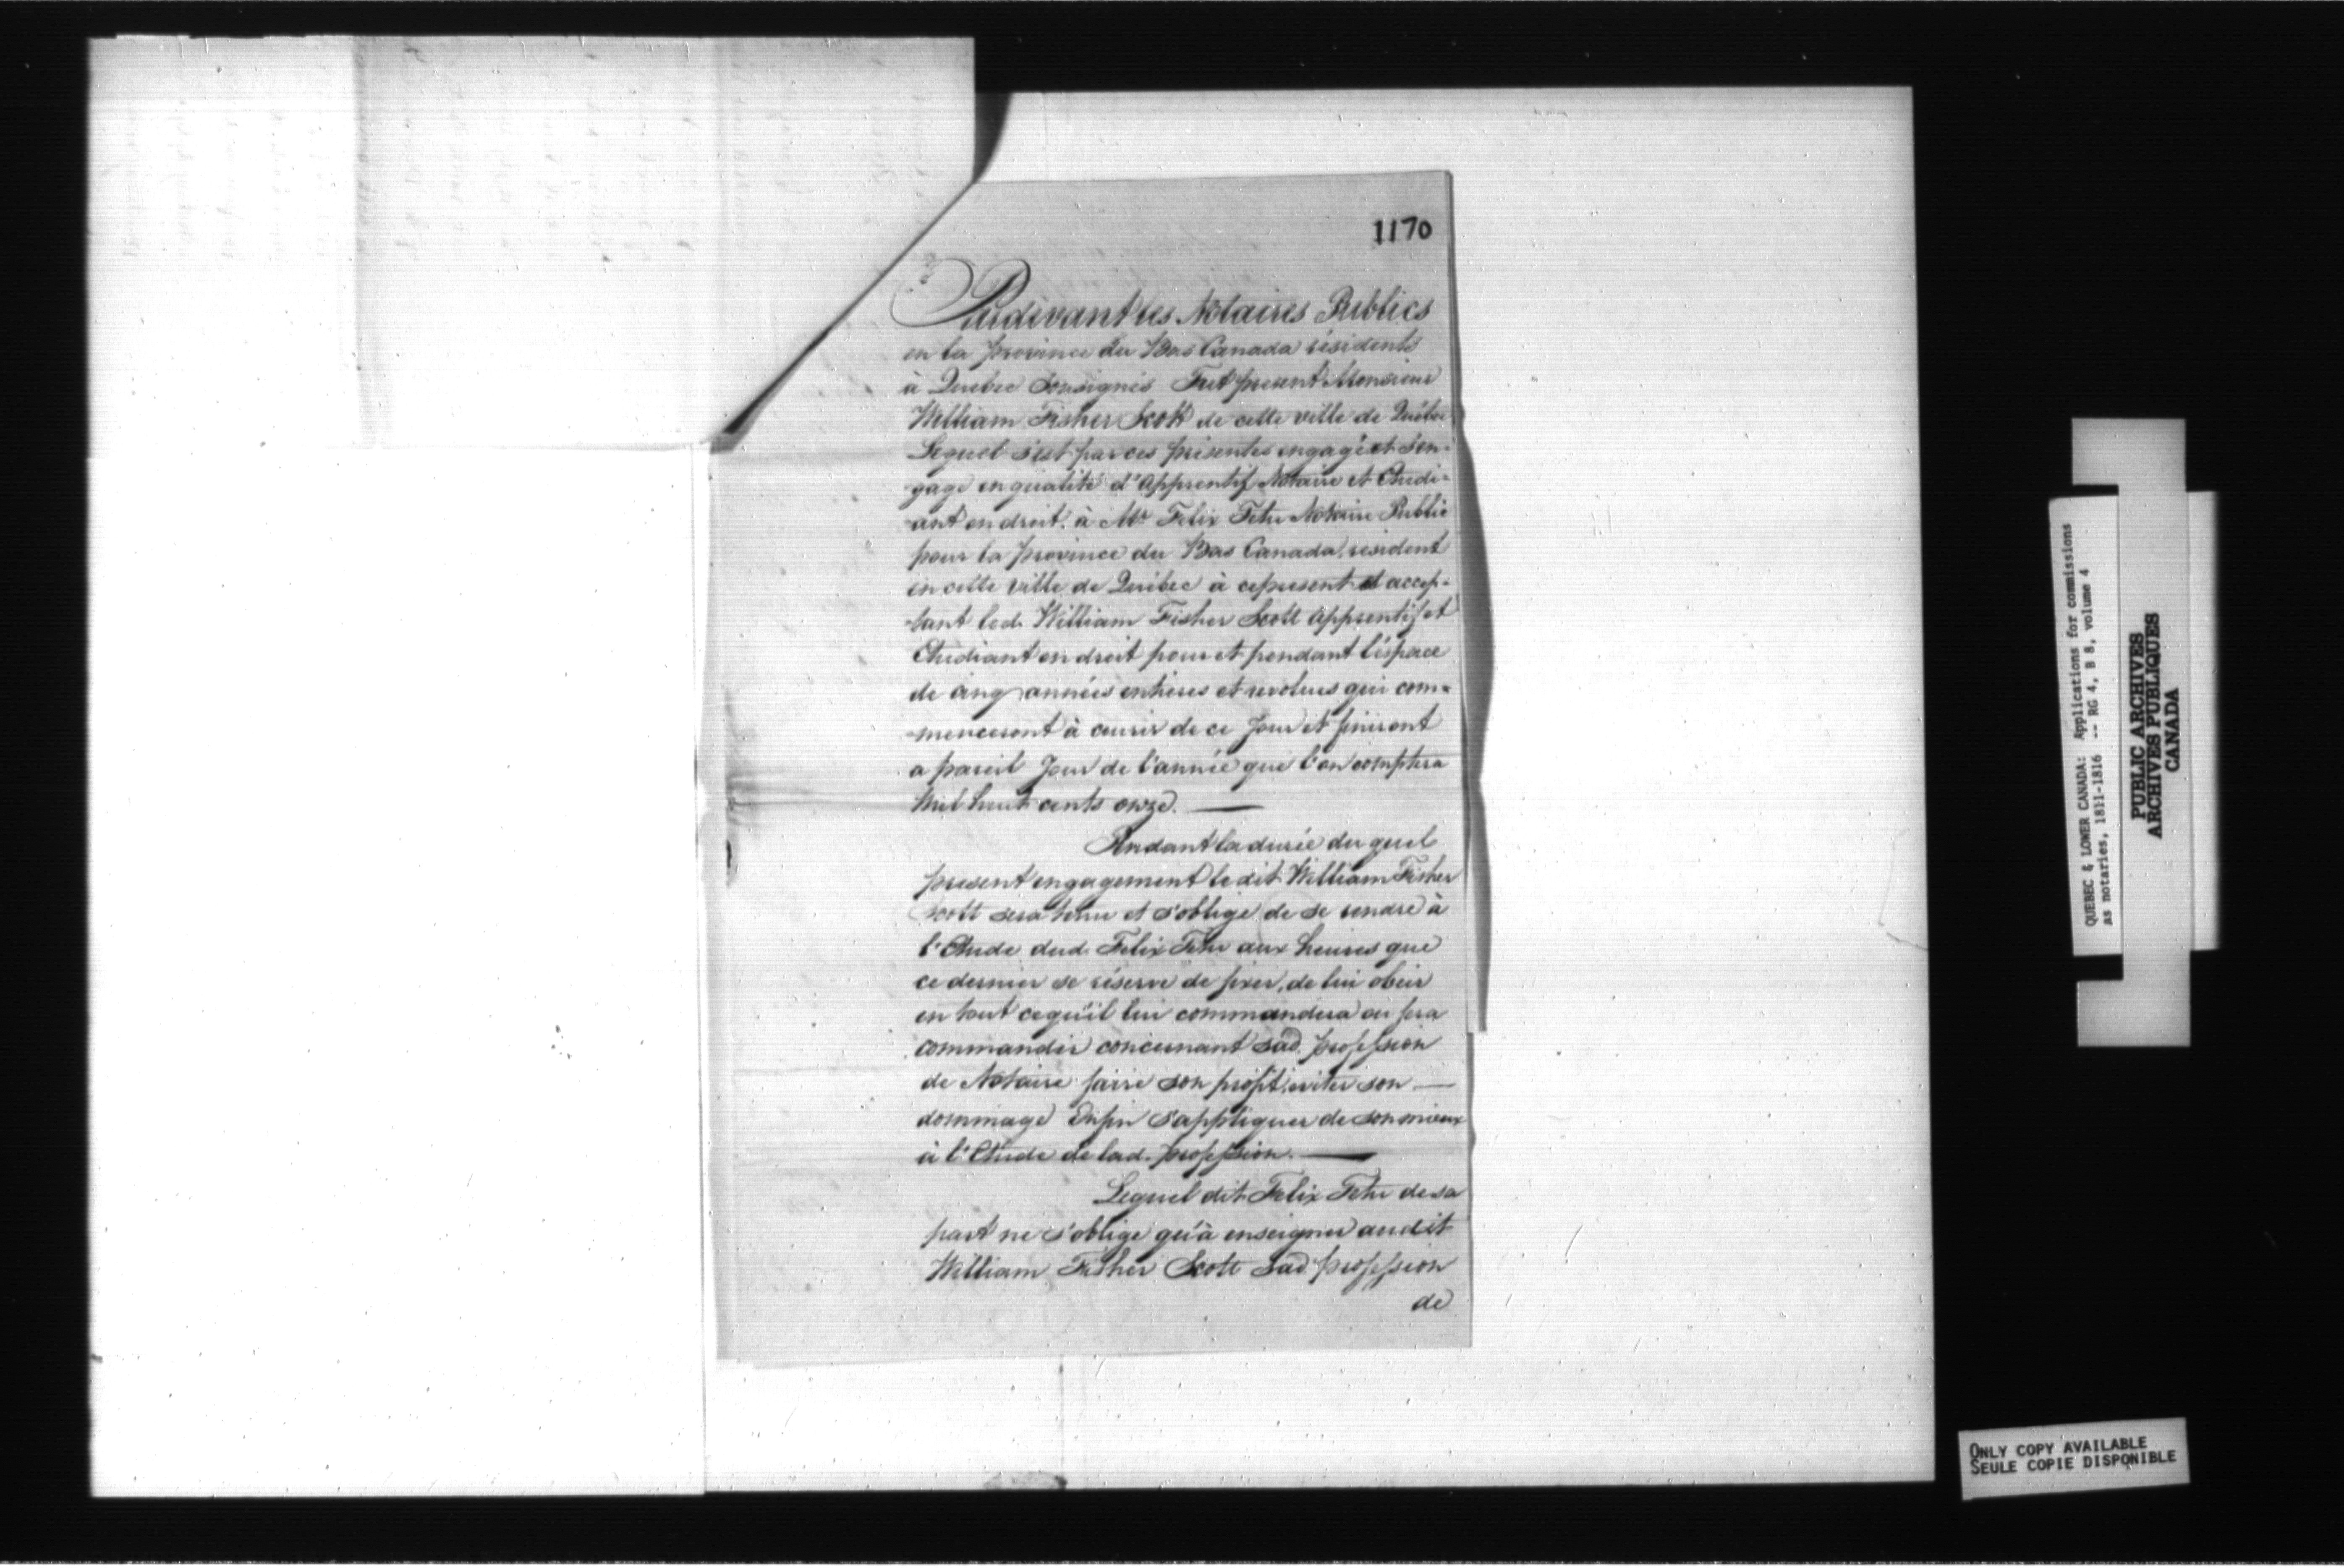 1170
Pardevant les Notaires Publics
en la province du Bas Canada résidents
à Quebec Soussignés Fut present Monsieur
William Fisher Scott de cette ville de Québec
Lequel s'est par ces présentes engagé et s'en-
-gage en qualité d'Apprentif Notaire et Etudi-
-ant en droit, à Mr. Felix Tetu Notaire Public
pour la province du Bas Canada, résident
en cette ville de Québec à ce present et accep-
-tant led. William Fisher Scott Apprentif et
Etudiant en droit pour et pendant l'éspace
de cinq années entieres et revolues qui com-
-menceront à courir de ce Jour et finiront
a pareil Jour de l'année que l'on comptera
Mil huit cents onze. —
Pendant la durée du quel
present engagement le dit William Fisher
Scott sera tenu et s'oblige de se rendre à
l'Etude dud. Felix Tetu aux heures que
ce dernier se réserve de fixer, de lui obeir
en tout ce qu'il lui commandera ou fera
commander concernant sad. profession
de Notaire faire son profit, eviter son —
dommage Enfin s'appliquer de son mieux
à l'Etude de lad. profession. —
Lequel dit Felix Tetu de sa
part ne s'oblige qu'à enseigner audit
William Fisher Scott sad. profession
de
QUEBEC & LOWER CANADA: Applications for commissions
as notaries, 1811-1816 -- RG 4, B 8, volume 4
PUBLIC ARCHIVES
ARCHIVES PUBLIQUES
CANADA
ONLY COPY AVAILABLE
SEULE COPIE DISPONIBLE